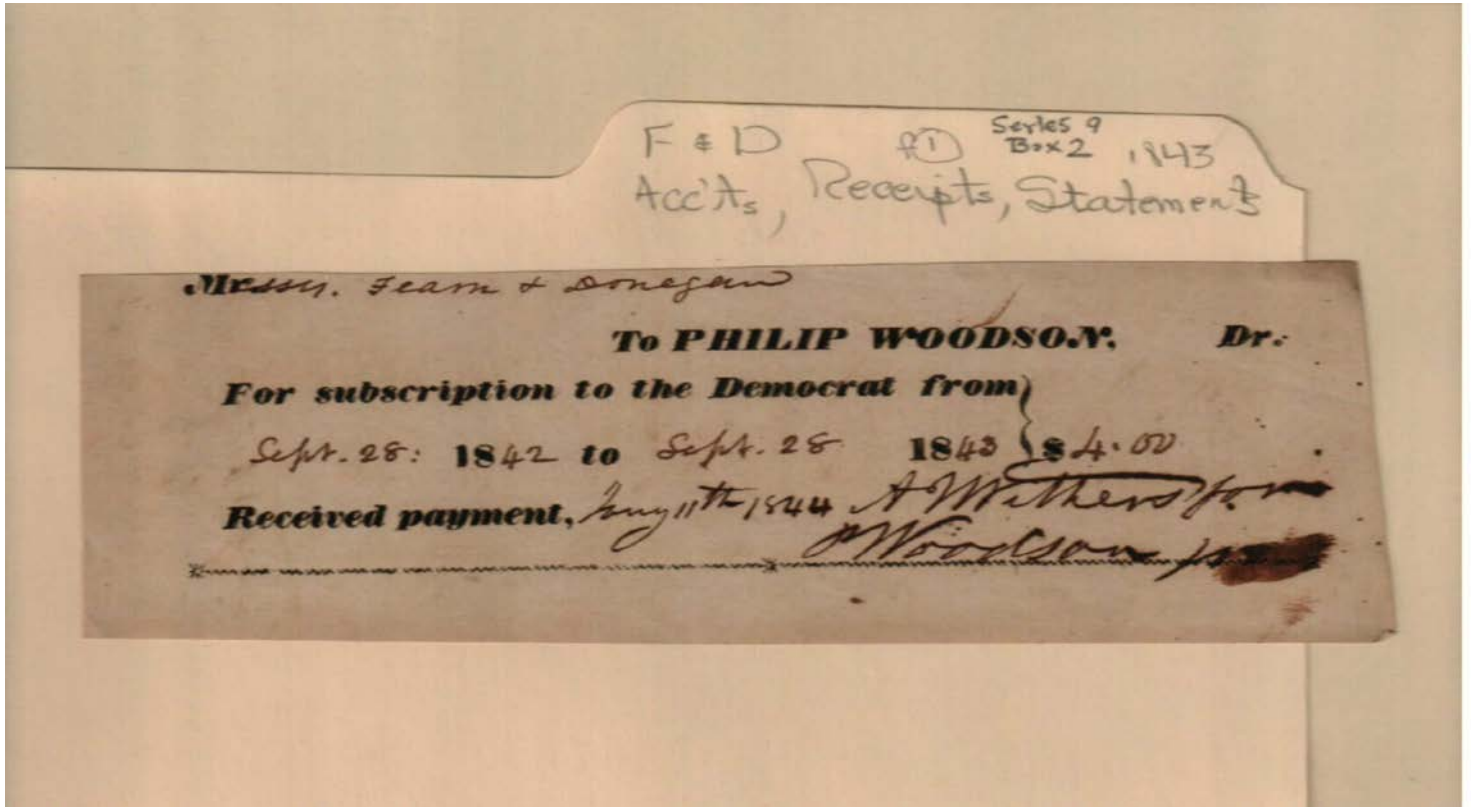 F & D f① Series 9 Box 2 1843
Acc'ts, Receipts, Statements
Messrs. Fearn & Donegan
To PHILIP WOODSON, Dr.
For subscription to the Democrat from
Sept. 28: 1842 to Sept. 28 1843 $4.00
Received payment, 11th 1844 A Withers for
P Woodson